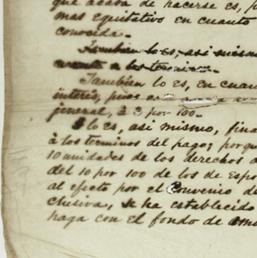 que acaba de hacerse es, p
mas equitativo en cuanto
conocida.
Tambien lo es, así mism
cuanto a los
Tambien lo es, en cuan
interés, pues
general, à 3 por 100.
I lo es, así mismo, fina
à los terminos del pago, porqu
10 unidades de los derechos a
del 10 por 100 de los de Espo
al efecto por el Convenio de
chisiva, se ha establecido
haga con el fondo de amo